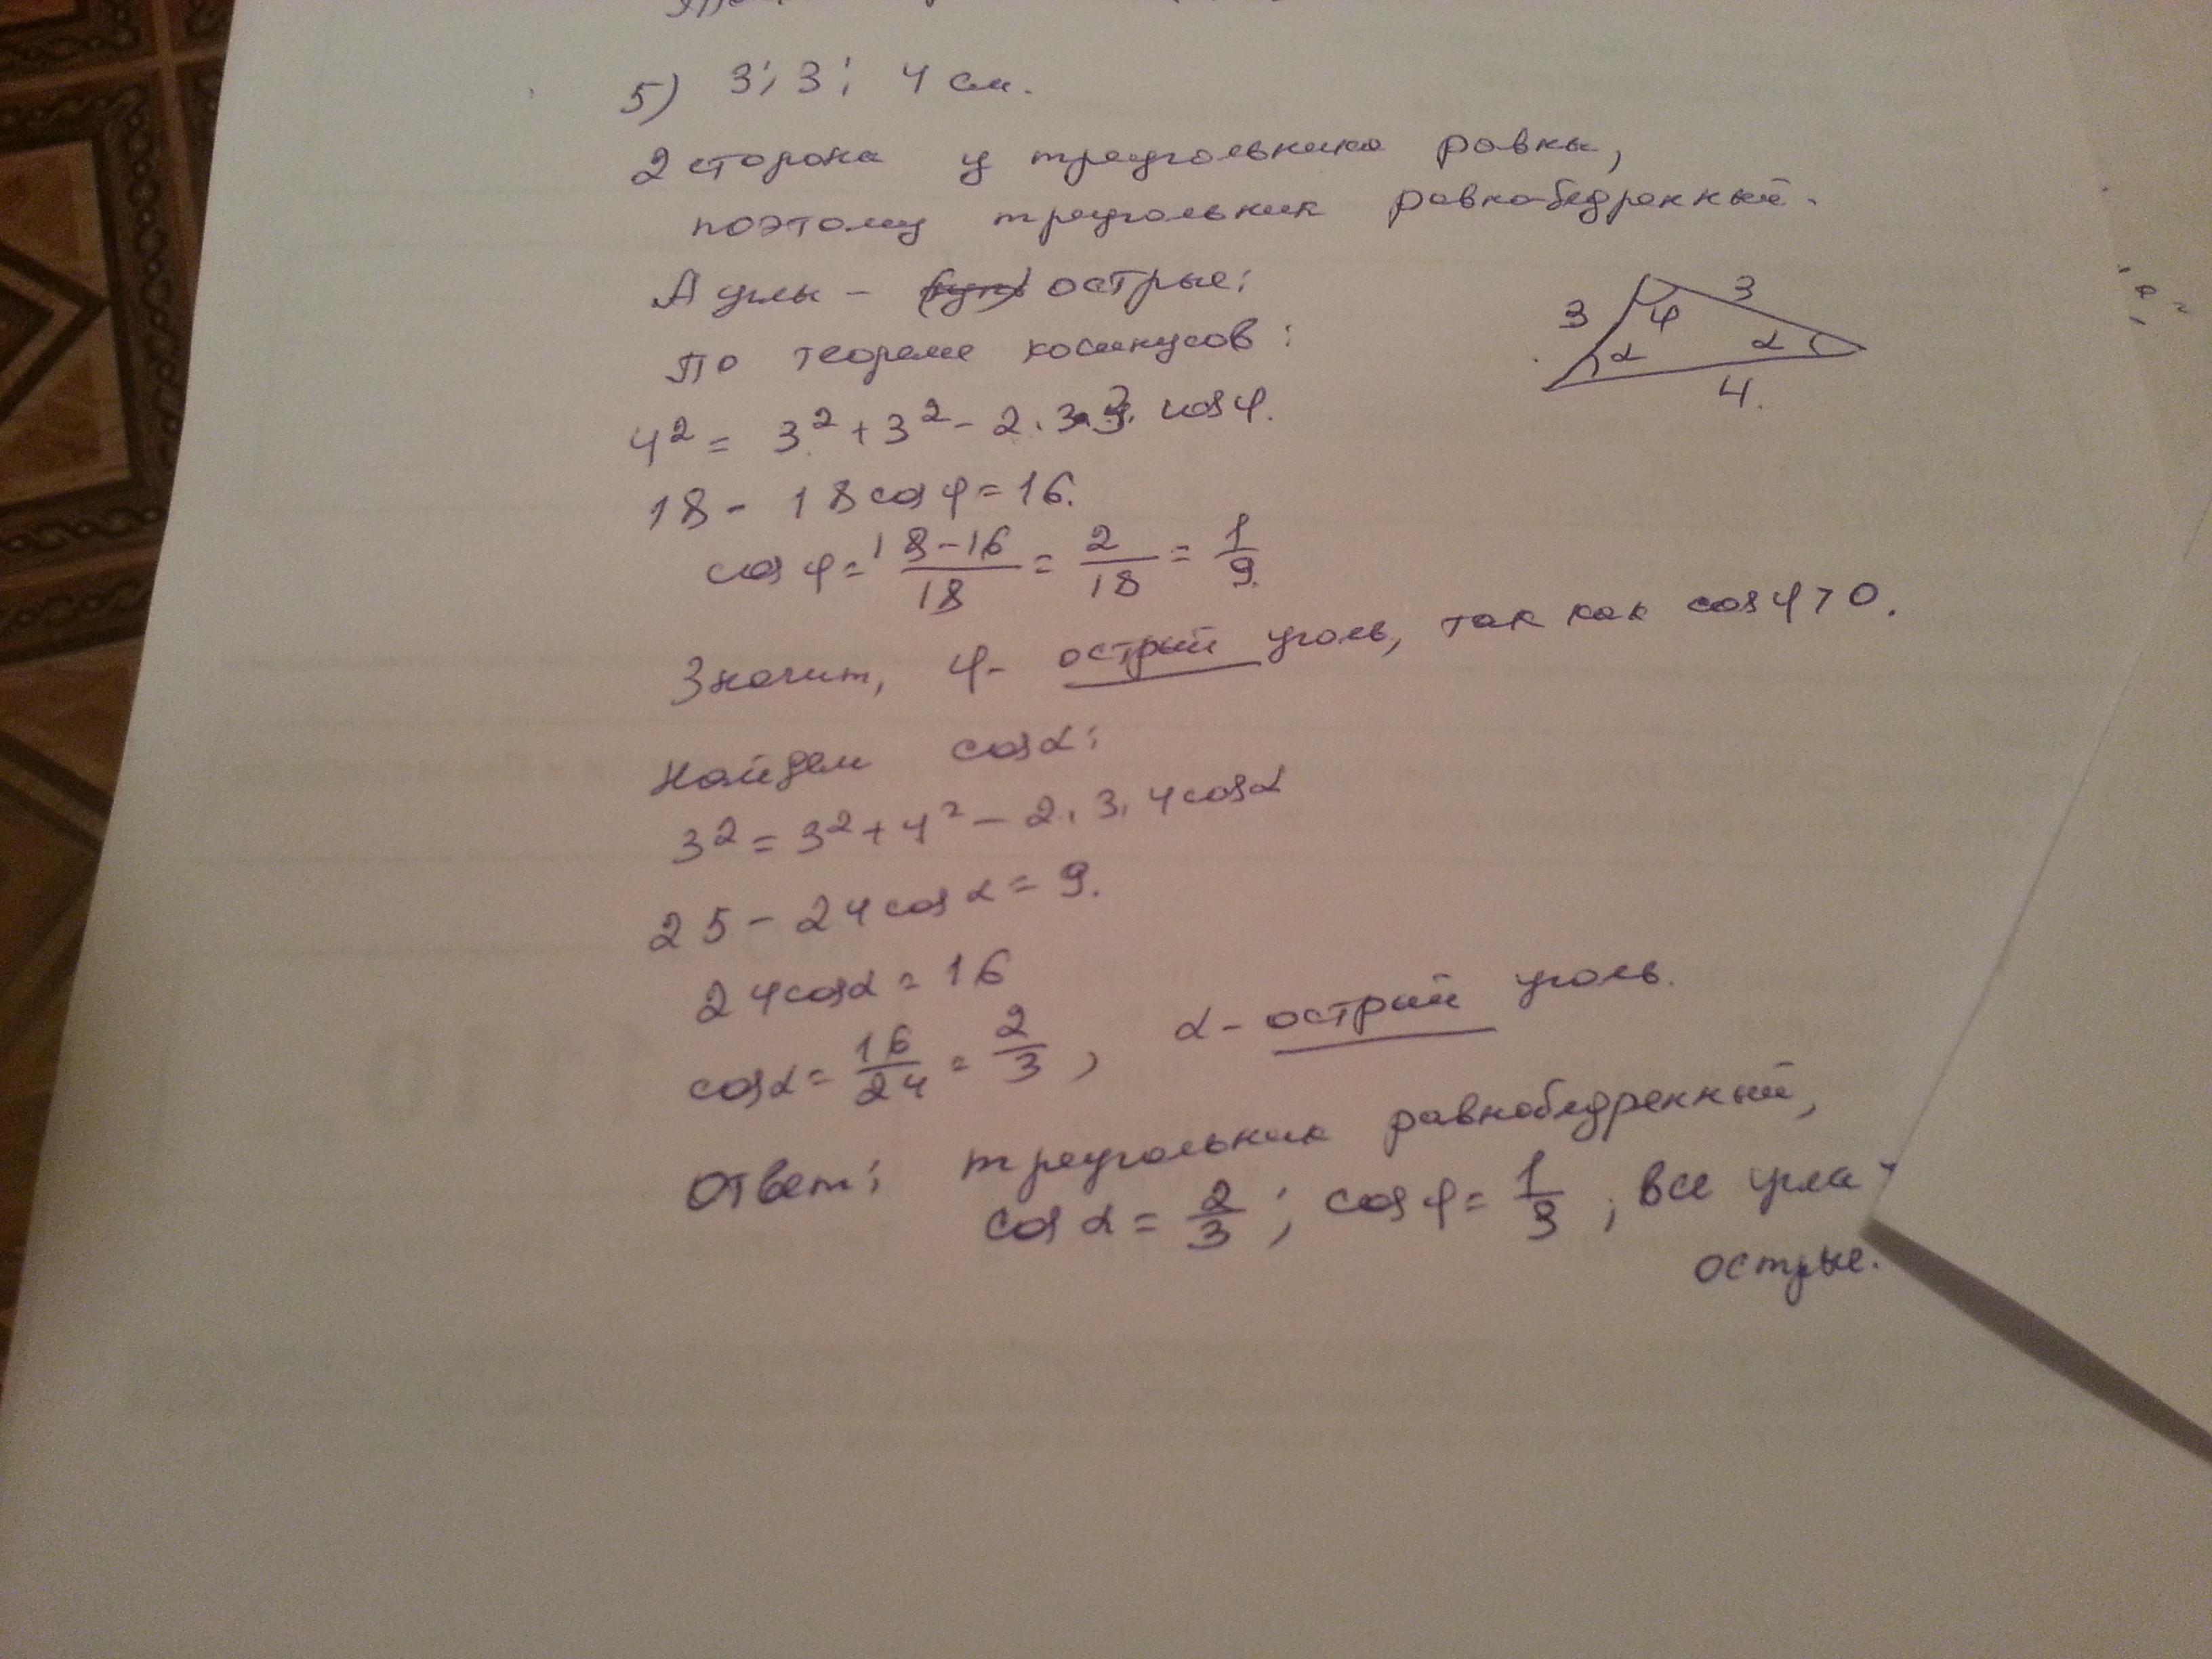 5) 3; 3; 4 см.
2 сторона у треугольника равны,
поэтому треугольник равнобедренный.
А углы - острые:
3
3
φ
α
α
4.
По теореме косинусов:
4² = 3² + 3² - 2·3·3· cos φ.
18 - 18 cos φ = 16.
cos φ = 18-16/18 = 2/18 = 1/9.
Значит, φ- острый уголь, так как cos φ > 0.
Найдем cos α:
3² = 3² + 4² - 2·3·4 cos α
25 - 24 cos α = 9.
24 cos α = 16
cos α = 16/24 = 2/3, α - острый уголь.
Ответ: треугольник равнобедренный,
cos α = 2/3; cos φ = 1/9; все угла -
острые.